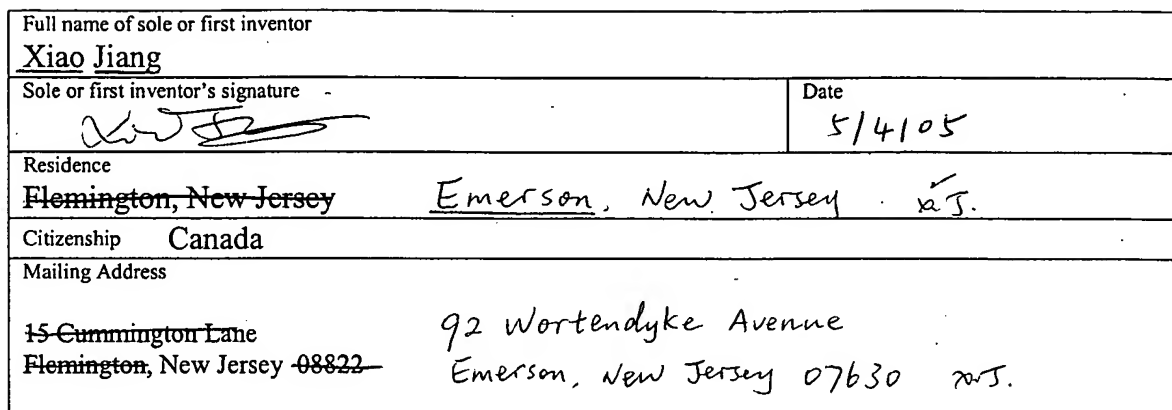 Full name of sole or first inventor
Xiao Jiang
Sole or first inventor's signature
Date
5/4/05
Residence
Flemington, New Jersey Emerson, New Jersey
Citizenship Canada
Mailing Address
15 Cummington Lane 92 Wortendyke Avenue
Flemington, New Jersey 08822 Emerson, New Jersey 07630